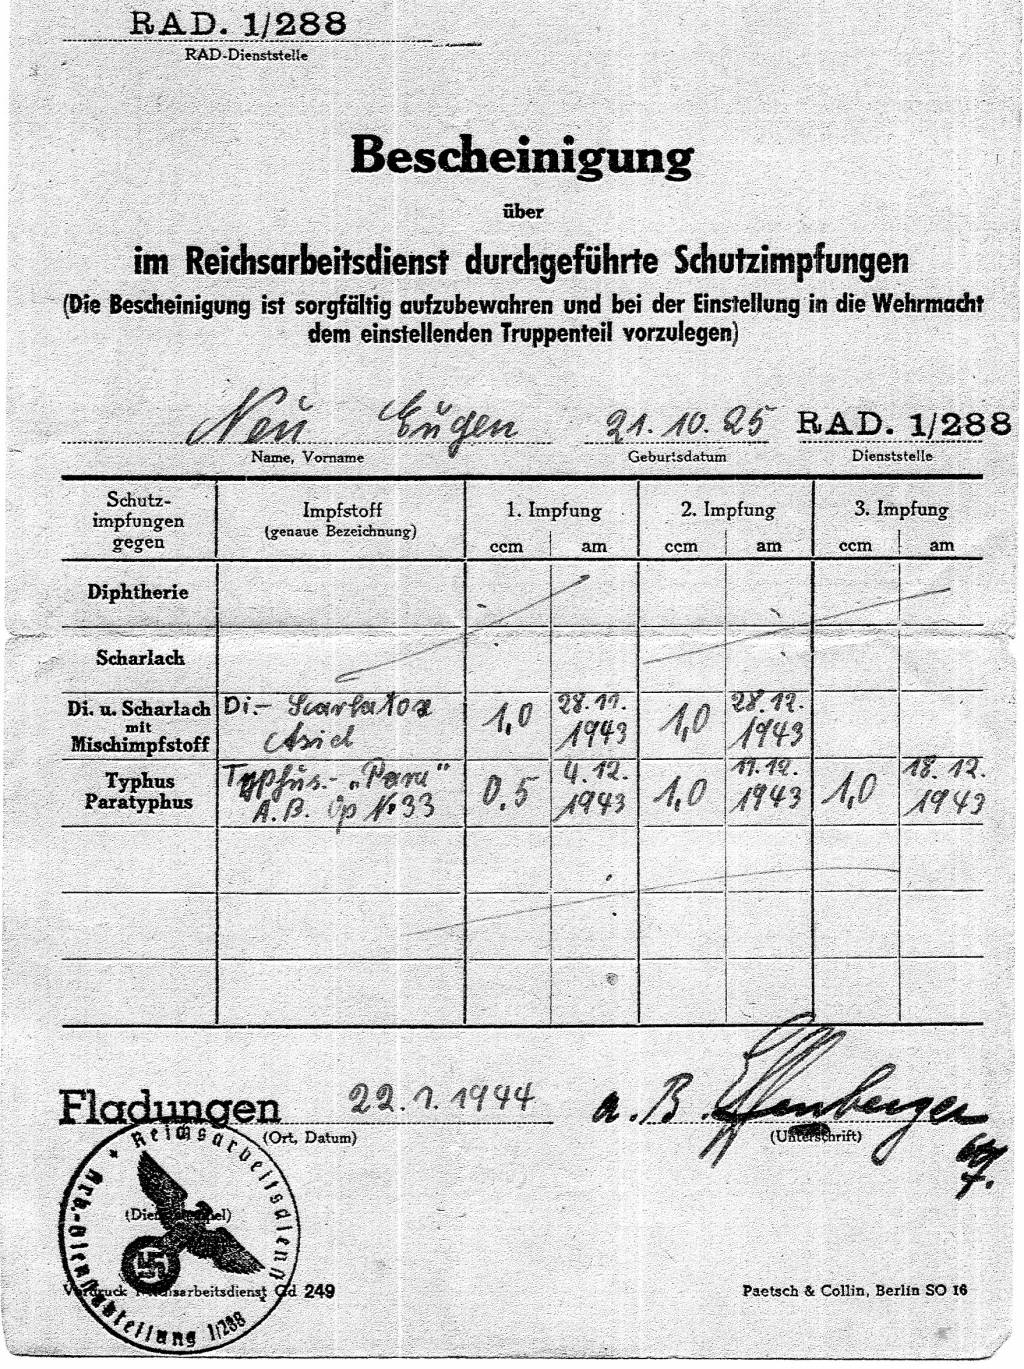 RAD. 1/288
RAD-Dienststelle
Bescheinigung
über
im Reichsarbeitsdienst durchgeführte Schutzimpfungen
(Die Bescheinigung ist sorgfältig aufzubewahren und bei der Einstellung in die Wehrmacht
dem einstellenden Truppenteil vorzulegen)
Neu Eugen 21.10.25 RAD. 1/288
Name, Vorname Geburtsdatum Dienststelle
Schutz-
impfungen
gegen
Impfstoff
(genaue Bezeichnung)
1. Impfung 2. Impfung 3. Impfung
ccm am ccm am ccm am
Diphtherie
Scharlach
Di. u. Scharlach
mit
Mischimpfstoff
Di.- Scarlatox
Asid
1,0 28.11.
1943
1,0 28.12.
1943
Typhus
Paratyphus
Typhus- „Para"
A.B. Op № 33
0.5 4.12.
1943
1,0 11.12.
1943
1,0 18.12.
1943
Fladungen 22.1.1944 a. B. Effenberger
(Ort, Datum) (Unterschrift)
Reichsarbeitsdienst
Arb.-Dienstabteilung 1/288
(Dienststempel)
Vordruck Reichsarbeitsdienst Gd 249
Paetsch & Collin, Berlin SO 16